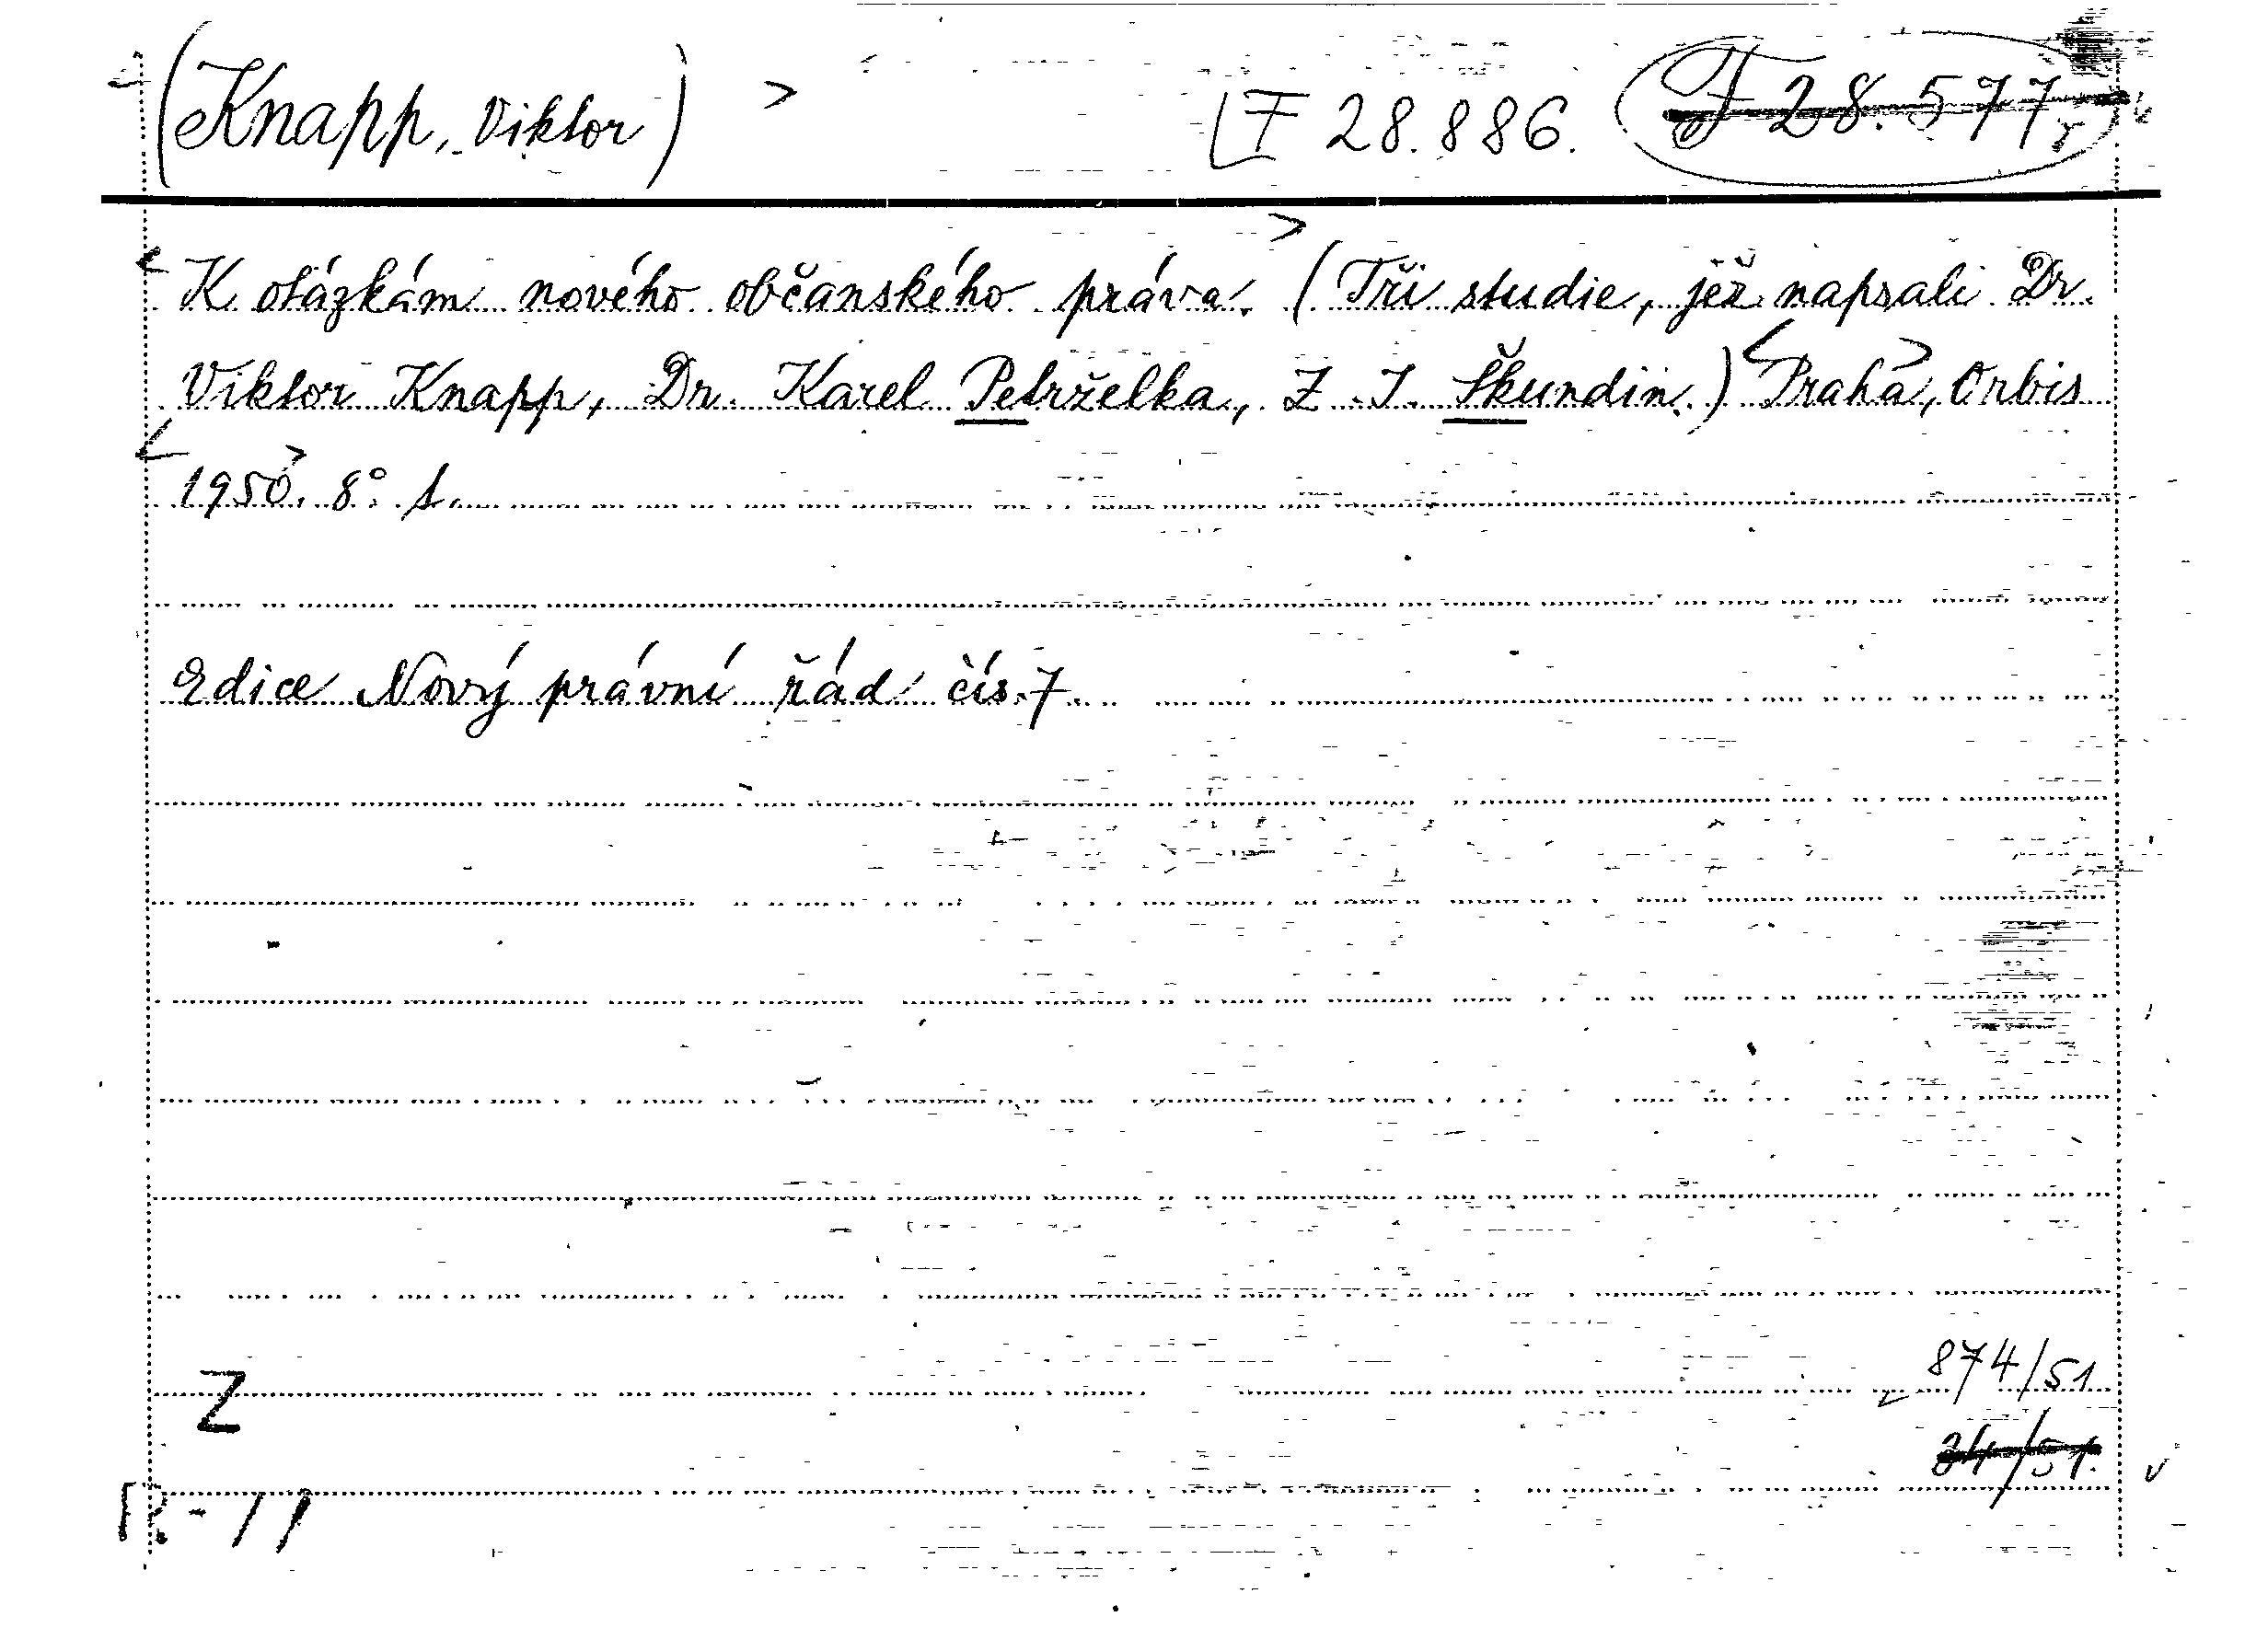 (Knapp, Viktor) F 28.886. F 28.577
K otázkám nového občanského práva. (Tři studie, jež napsali Dr.
Viktor Knapp, Dr. Karel Petrželka, Z. I. Škundin.) Praha, Orbis
1950. 8°. s.
Edice Nový právní řád čís. 7.
874/51
Z
34/51.
R-11